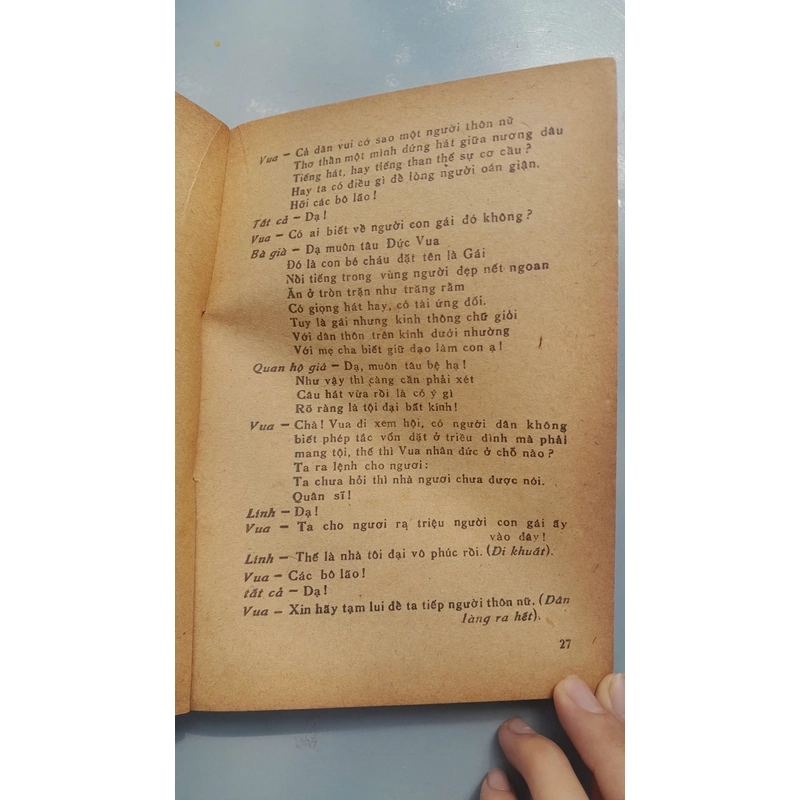 Vua – Cả dân vui cớ sao một người thôn nữ
Thơ thần một mình đứng hát giữa nương dâu
Tiếng hát, hay tiếng than thế sự cơ cầu?
Hay ta có điều gì để lòng người oán giận.
Hỡi các bô lão!
Tất cả – Dạ!
Vua – Có ai biết về người con gái đó không?
Bà già – Dạ muôn tâu Đức Vua
Đó là con bé cháu đặt tên là Gái
Nổi tiếng trong vùng người đẹp nết ngoan
Ăn ở tròn trặn như trăng rằm
Có giọng hát hay, có tài ứng đối.
Tuy là gái nhưng kinh thông chữ giỏi
Với dân thôn trên kính dưới nhường
Với mẹ cha biết giữ đạo làm con ạ!
Quan hộ giá – Dạ, muôn tâu bệ hạ!
Như vậy thì càng cần phải xét
Câu hát vừa rồi là có ý gì
Rõ ràng là tội đại bất kính!
Vua – Chà! Vua đi xem hội, có người dân không
biết phép tắc vốn đặt ở triều đình mà phải
mang tội, thế thì Vua nhân đức ở chỗ nào?
Ta ra lệnh cho ngươi:
Ta chưa hỏi thì nhà ngươi chưa được nói.
Quân sĩ!
Lính – Dạ!
Vua – Ta cho ngươi ra triệu người con gái ấy
vào đây!
Lính – Thế là nhà tôi đại vô phúc rồi. (Đi khuất).
Vua – Các bô lão!
tất cả – Dạ!
Vua – Xin hãy tạm lui để ta tiếp người thôn nữ. (Dân
làng ra hết).
27